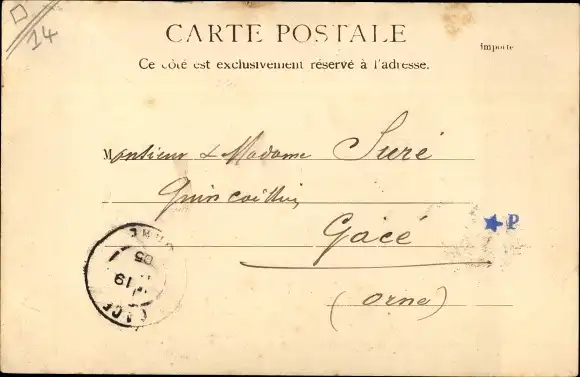 14
CARTE POSTALE
Ce côté est exclusivement réservé à l'adresse.
importe
Monsieur & Madame Suré
Quincaillier
Gacé
(Orne)
P
GACÉ
19
05
ORNE